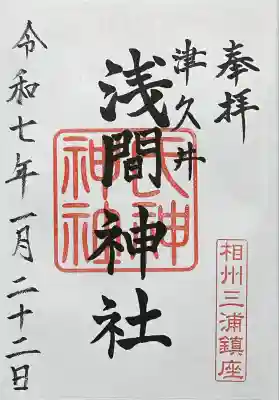 奉拝
津久井
浅間神社
令和七年一月二十二日
相州三浦鎮座